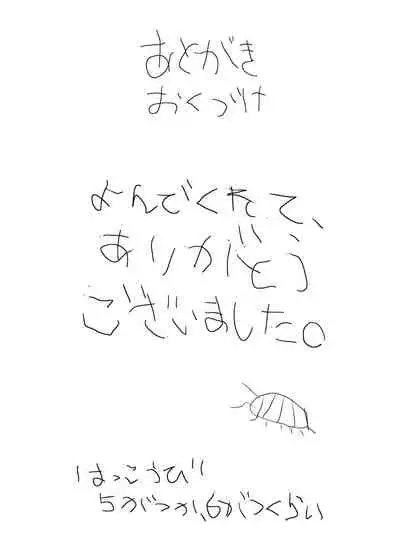 あとがき
おくづけ
よんでくれて、
ありがどう
ございました。
はっこうび
5がつか、6がつくらい